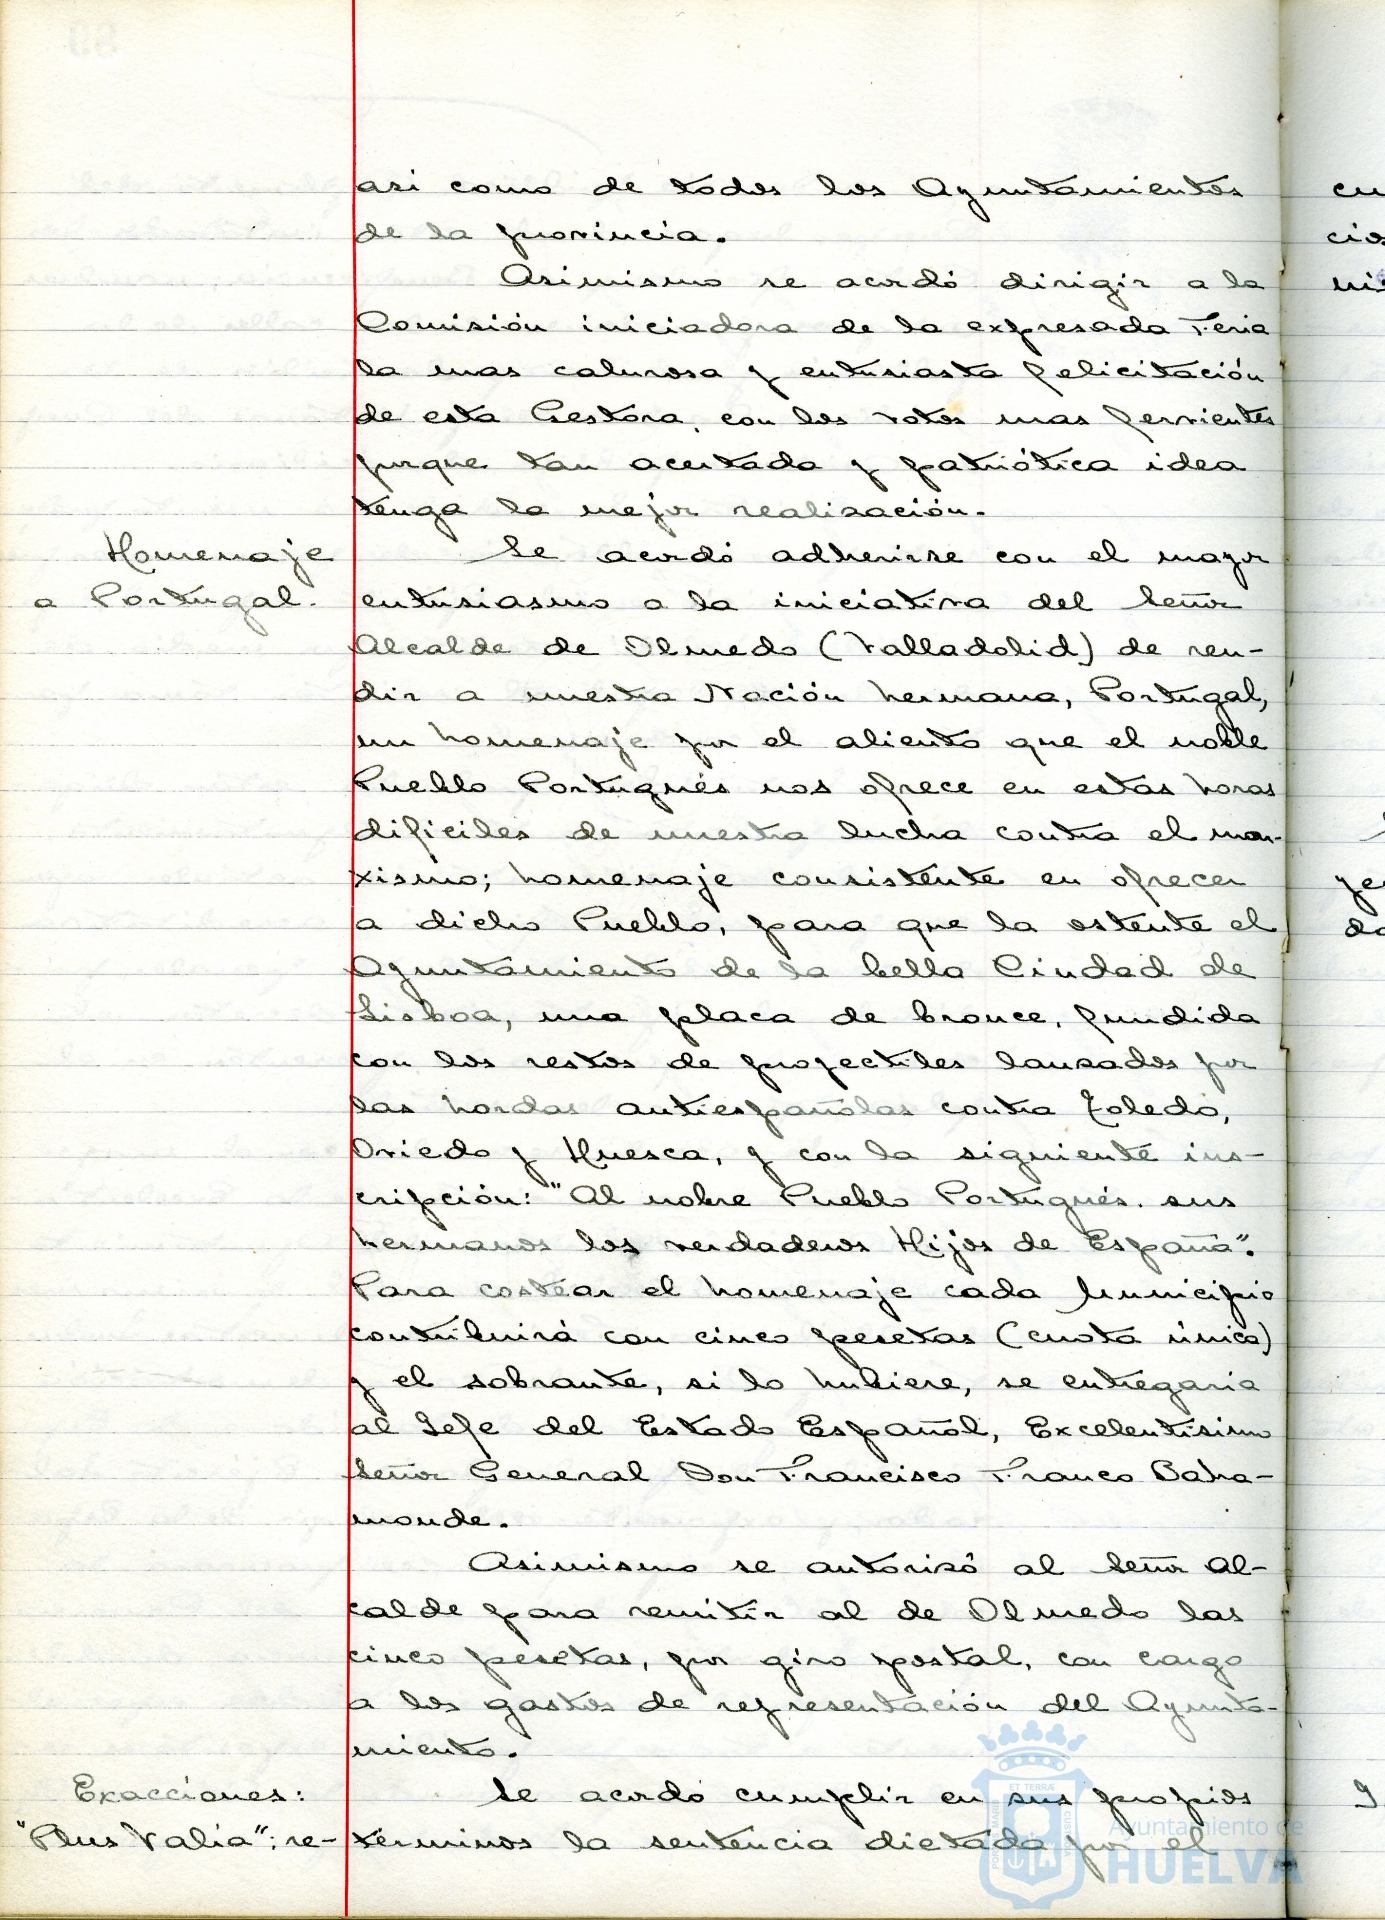 asi como de todos los Ayuntamientos
de la provincia.
Asimismo se acordó dirigir a la
Comisión iniciadora de la expresada Feria
la mas calurosa y entusiasta felicitación
de esta Gestora, con los votos mas fervientes
porque tan acertada y patriótica idea
tenga la mejor realización.
Homenaje
a Portugal.
Se acordó adherirse con el mayor
entusiasmo a la iniciativa del Señor
Alcalde de Olmedo (Valladolid) de ren-
dir a nuestra Nación hermana, Portugal,
un homenaje por el aliento que el noble
Pueblo Portugués nos ofrece en estas horas
dificiles de nuestra lucha contra el mar-
xismo; homenaje consistente en ofrecer
a dicho Pueblo, para que la ostente el
Ayuntamiento de la bella Ciudad de
Lisboa, una placa de bronce, fundida
con los restos de proyectiles lanzados por
las hordas antiespañolas contra Toledo,
Oviedo y Huesca, y con la siguiente ins-
cripción: "Al noble Pueblo Portugués. sus
hermanos los verdaderos Hijos de España".
Para costear el homenaje cada Municipio
contribuirá con cinco pesetas (cuota única)
y el sobrante, si lo hubiere, se entregaria
al Jefe del Estado Español, Excelentisimo
Señor General Don Francisco Franco Baha-
monde.
Asimismo se autorizó al Señor Al-
calde para remitir al de Olmedo las
cinco pesetas, por giro postal, con cargo
a los gastos de representación del Ayunta-
miento.
Exacciones:
"Plus Valia"; re-
Se acordó cumplir en sus propios
términos la sentencia dictada por el
Ayuntamiento de
HUELVA
cu
cios
ye
do